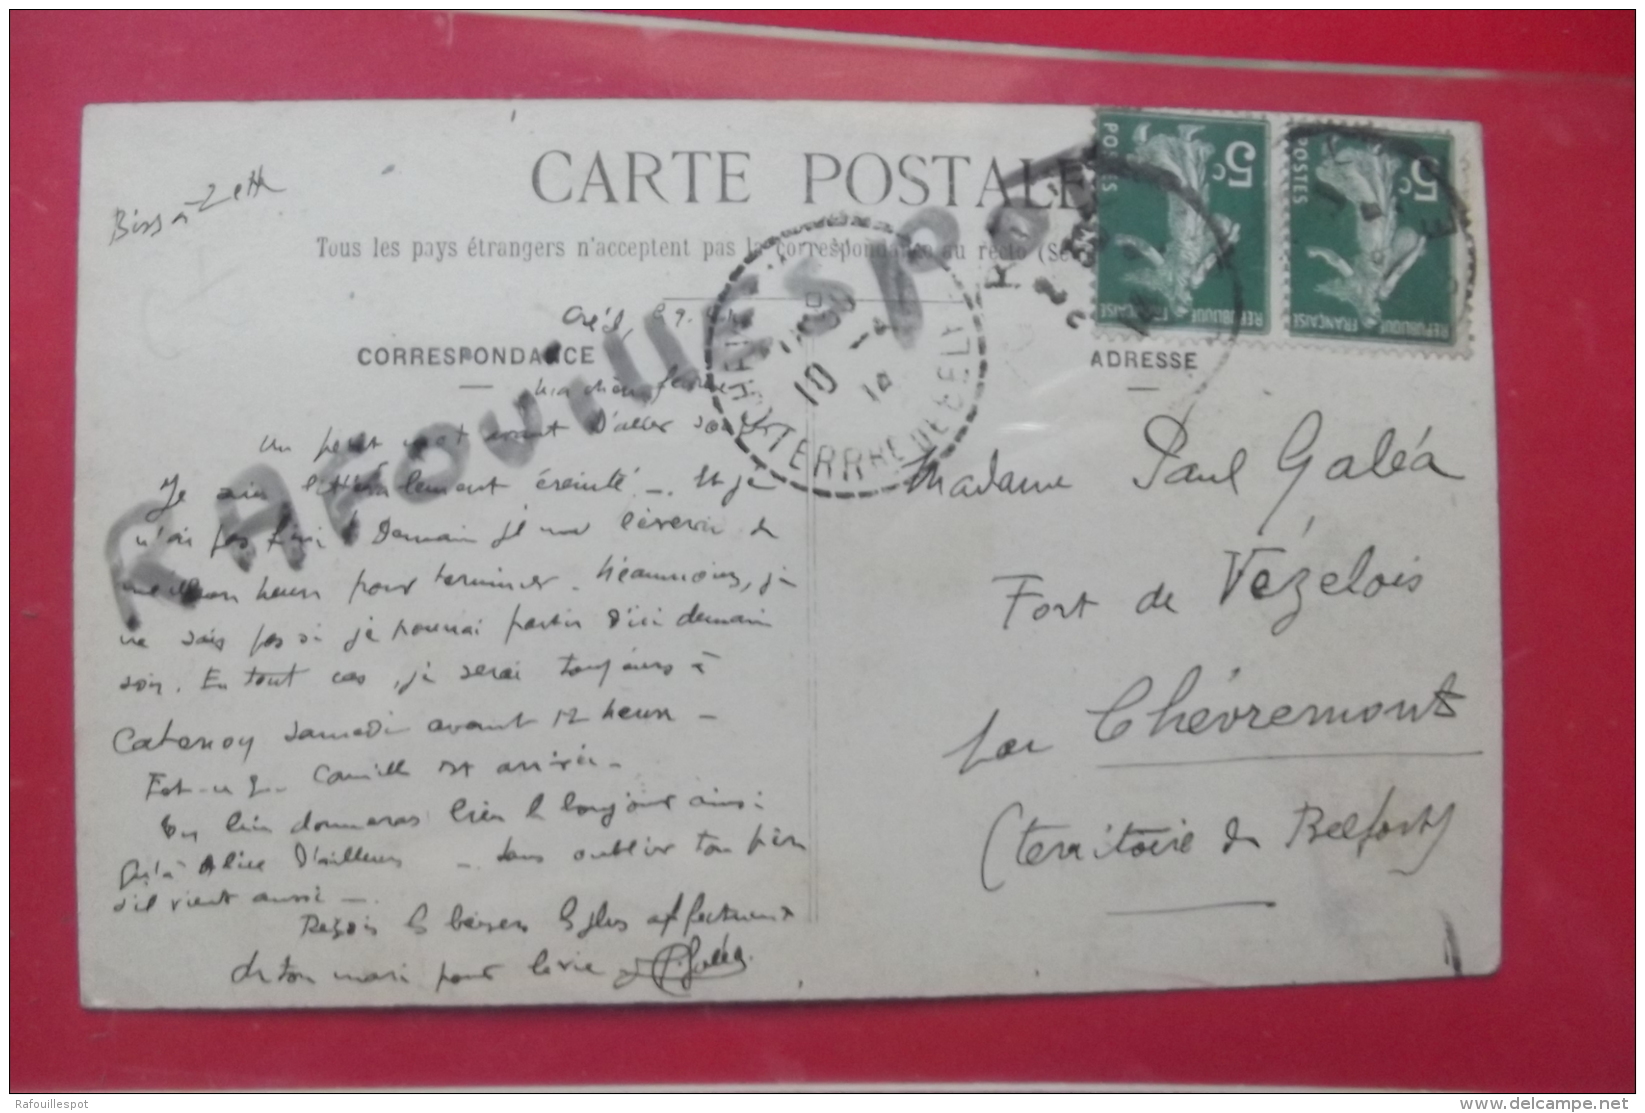 Biss à Zett
CARTE POSTALE
Tous les pays étrangers n'acceptent pas la correspondance au recto (Se
Creil, le 9
CORRESPONDANCE
ADRESSE
Ma chère femme
Un petit mot avant d'aller
Je suis littéralement éreinté. Et je
n'ai pas fini ! Demain je me lèverai de
meilleure heure pour terminer. Néanmoins, je
ne sais pas si je pourrai partir d'ici demain
soir. En tout cas, je serai toujours à
Catenoy samedi avant 12 heures
Est-ce que Camille est arrivée
lui donneras bien le bonjour ainsi
qu'à Alice d'ailleurs sans oublier ton père
s'il vient aussi
Reçois les baisers les plus affectueux
de ton mari pour la vie P. Galéa
Madame Paul Galéa
Fort de Vézelois
par Chèvremont
(territoire de Belfort)
5c
POSTES
REPUBLIQUE FRANÇAISE
5c
POSTES
REPUBLIQUE FRANÇAISE
10 -4
TERR
RAFOUILLESPOT
Rafouillespot
delcampe.net